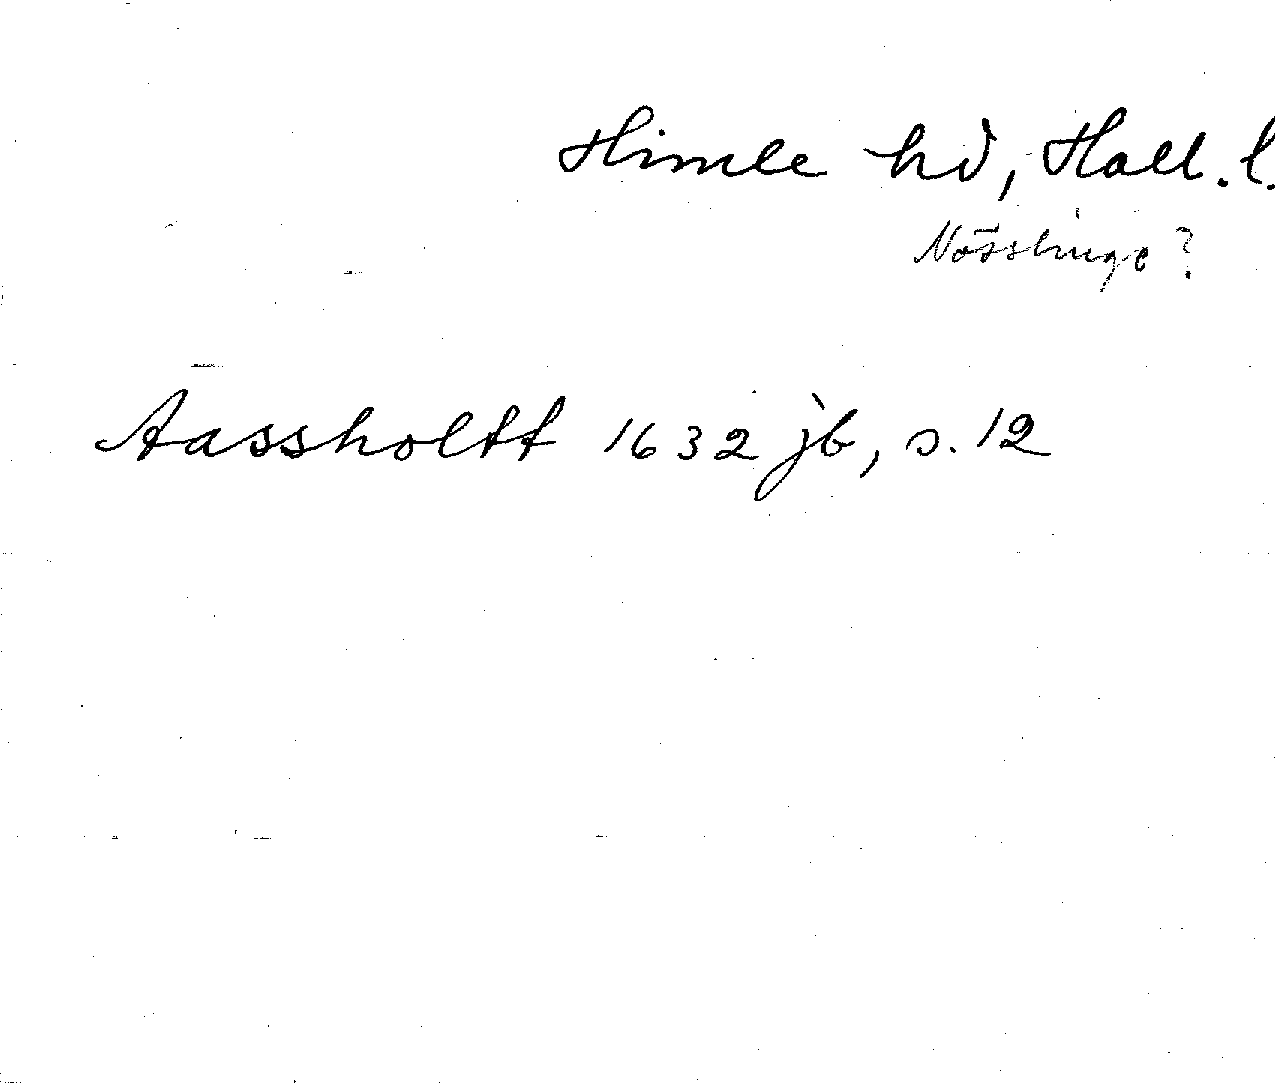 Himle hd, Hall. l.
Nösslinge?
Aassholtt 1632 jb, s. 12